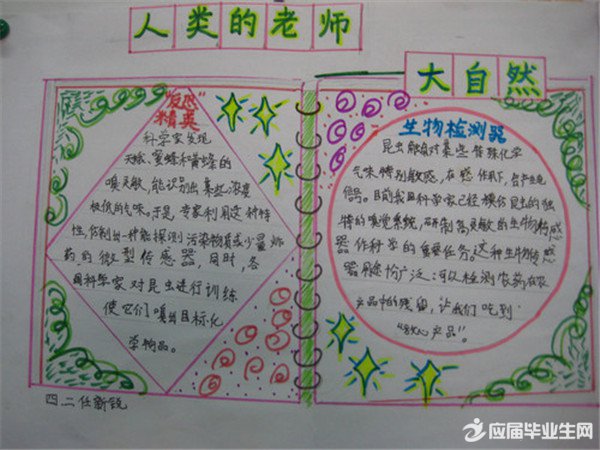 人类的老师
大自然
"发感"
精英
科学家发现
天蛾、蜜蜂和黄蜂的
嗅灵敏,能识别出某些浓度
极低的气味。于是,专家利用这种特
性,仿制出一种能探测污染物或少量炸
药的微型传感器,同时,各
国科学家对昆虫进行训练
使它们嗅出目标化
学物品。
四二任新锐
生物检测器
昆虫触角对某些特殊化学
气味特别敏感,在作用下,会产生电
信号。目前我国科学家已经模仿昆虫的独
特的嗅觉系统,研制器灵敏的生物传感
器作科学的重要任务。这种生物传感
器用除广泛:可以检测农药在农
产品中的残留,让我们吃到
"放心产品"。
应届毕业生网